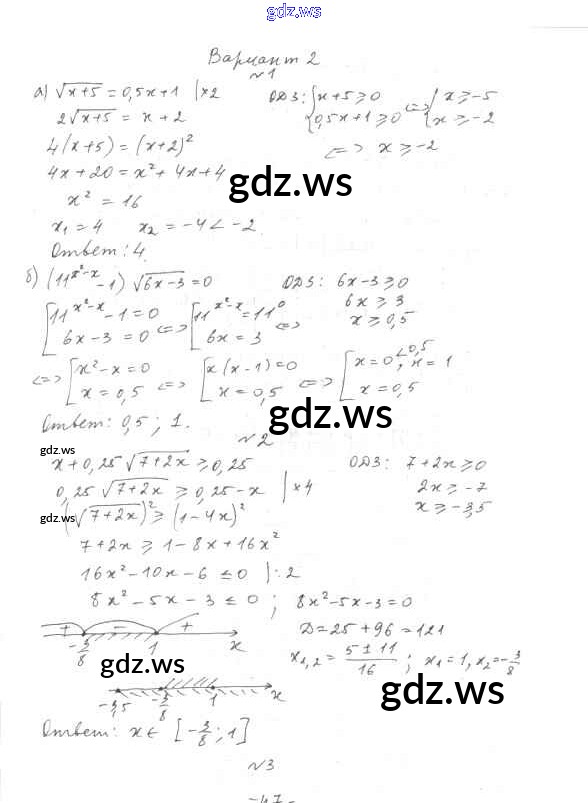 gdz.ws
Вариант 2
№1
а) √(x+5) = 0,5x+1 | ×2    ОДЗ: {x+5 ≥ 0 {0,5x+1 ≥ 0 <=> {x ≥ -5 {x ≥ -2
2√(x+5) = x+2
<=> x ≥ -2
4(x+5) = (x+2)²
4x+20 = x²+4x+4
gdz.ws
x² = 16
x₁ = 4    x₂ = -4 < -2.
Ответ: 4.
б) (11^(x²-x) - 1) √(6x-3) = 0    ОДЗ: 6x-3 ≥ 0
6x ≥ 3
x ≥ 0,5
[11^(x²-x) - 1 = 0 [6x-3 = 0 <=> [11^(x²-x) = 11⁰ [6x = 3 <=>
<=> [x²-x = 0 [x = 0,5 <=> [x(x-1) = 0 [x = 0,5 <=> [x = 0 < 0,5, x = 1 [x = 0,5
gdz.ws
Ответ: 0,5; 1.
№2
gdz.ws
x+0,25√(7+2x) ≥ 0,25    ОДЗ: 7+2x ≥ 0
0,25√(7+2x) ≥ 0,25-x | ×4    2x ≥ -7
x ≥ -3,5
gdz.ws
(√(7+2x))² ≥ (1-4x)²
7+2x ≥ 1-8x+16x²
16x²-10x-6 ≤ 0 | :2
8x²-5x-3 ≤ 0; 8x²-5x-3 = 0
D = 25+96 = 121
x₁,₂ = (5±11)/16; x₁ = 1, x₂ = -3/8
+ - +
-3/8 1 x
gdz.ws
gdz.ws
-3,5 -3/8 1 x
Ответ: x ∈ [-3/8; 1]
№3
-47-